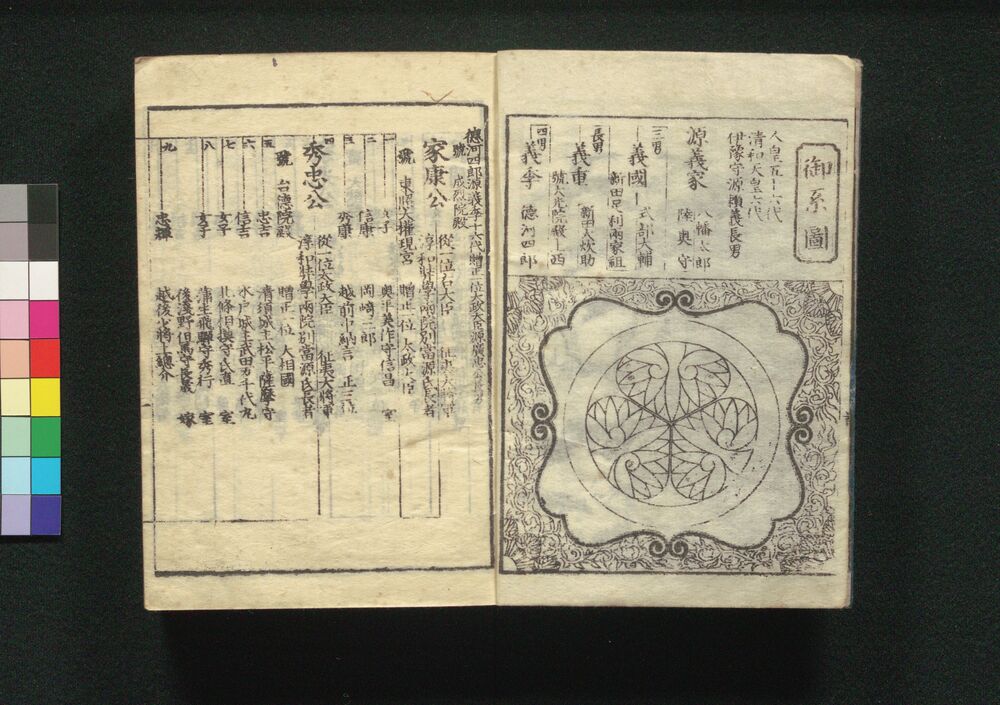 御系圖
人皇五十六代
清和天皇六代
伊豫守源頼義長男
源義家
八幡太郎
陸奥守
三男
義國
式部大輔
新田足利両家祖
長男
義重
新田大炊助
號大光院殿上西
四男
義季
徳河四郎
徳河四郎源義季十六代贈正一位太政大臣源廣忠公長男
號 成烈院殿
家康公
從一位右大臣 征夷大将軍
淳和弉學両院別當源氏長者
號 東照大権現宮 贈正一位太政大臣
一 女子 奥平美作守信昌 室
二 信康 岡崎三郎
三 秀康 越前中納言 正三位
四
秀忠公
從一位太政大臣 征夷大将軍
淳和弉學両院別當源氏長者
號 台徳院殿 贈正一位 大相國
五 忠吉 清須城主松平薩摩守
六 信吉 水戸城主武田万千代丸
七 女子 北條相摸守氏直 室
八 女子 蒲生飛驒守秀行 室
後淺野但馬守長晟 嫁
九 忠輝 越後少将上總介